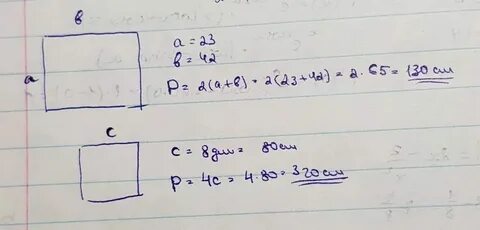 в
a
a = 23
в = 42
P = 2(a+в) = 2(23+42) = 2·65 = 130 см
c
c = 8дм = 80см
P = 4c = 4·80 = 320 см